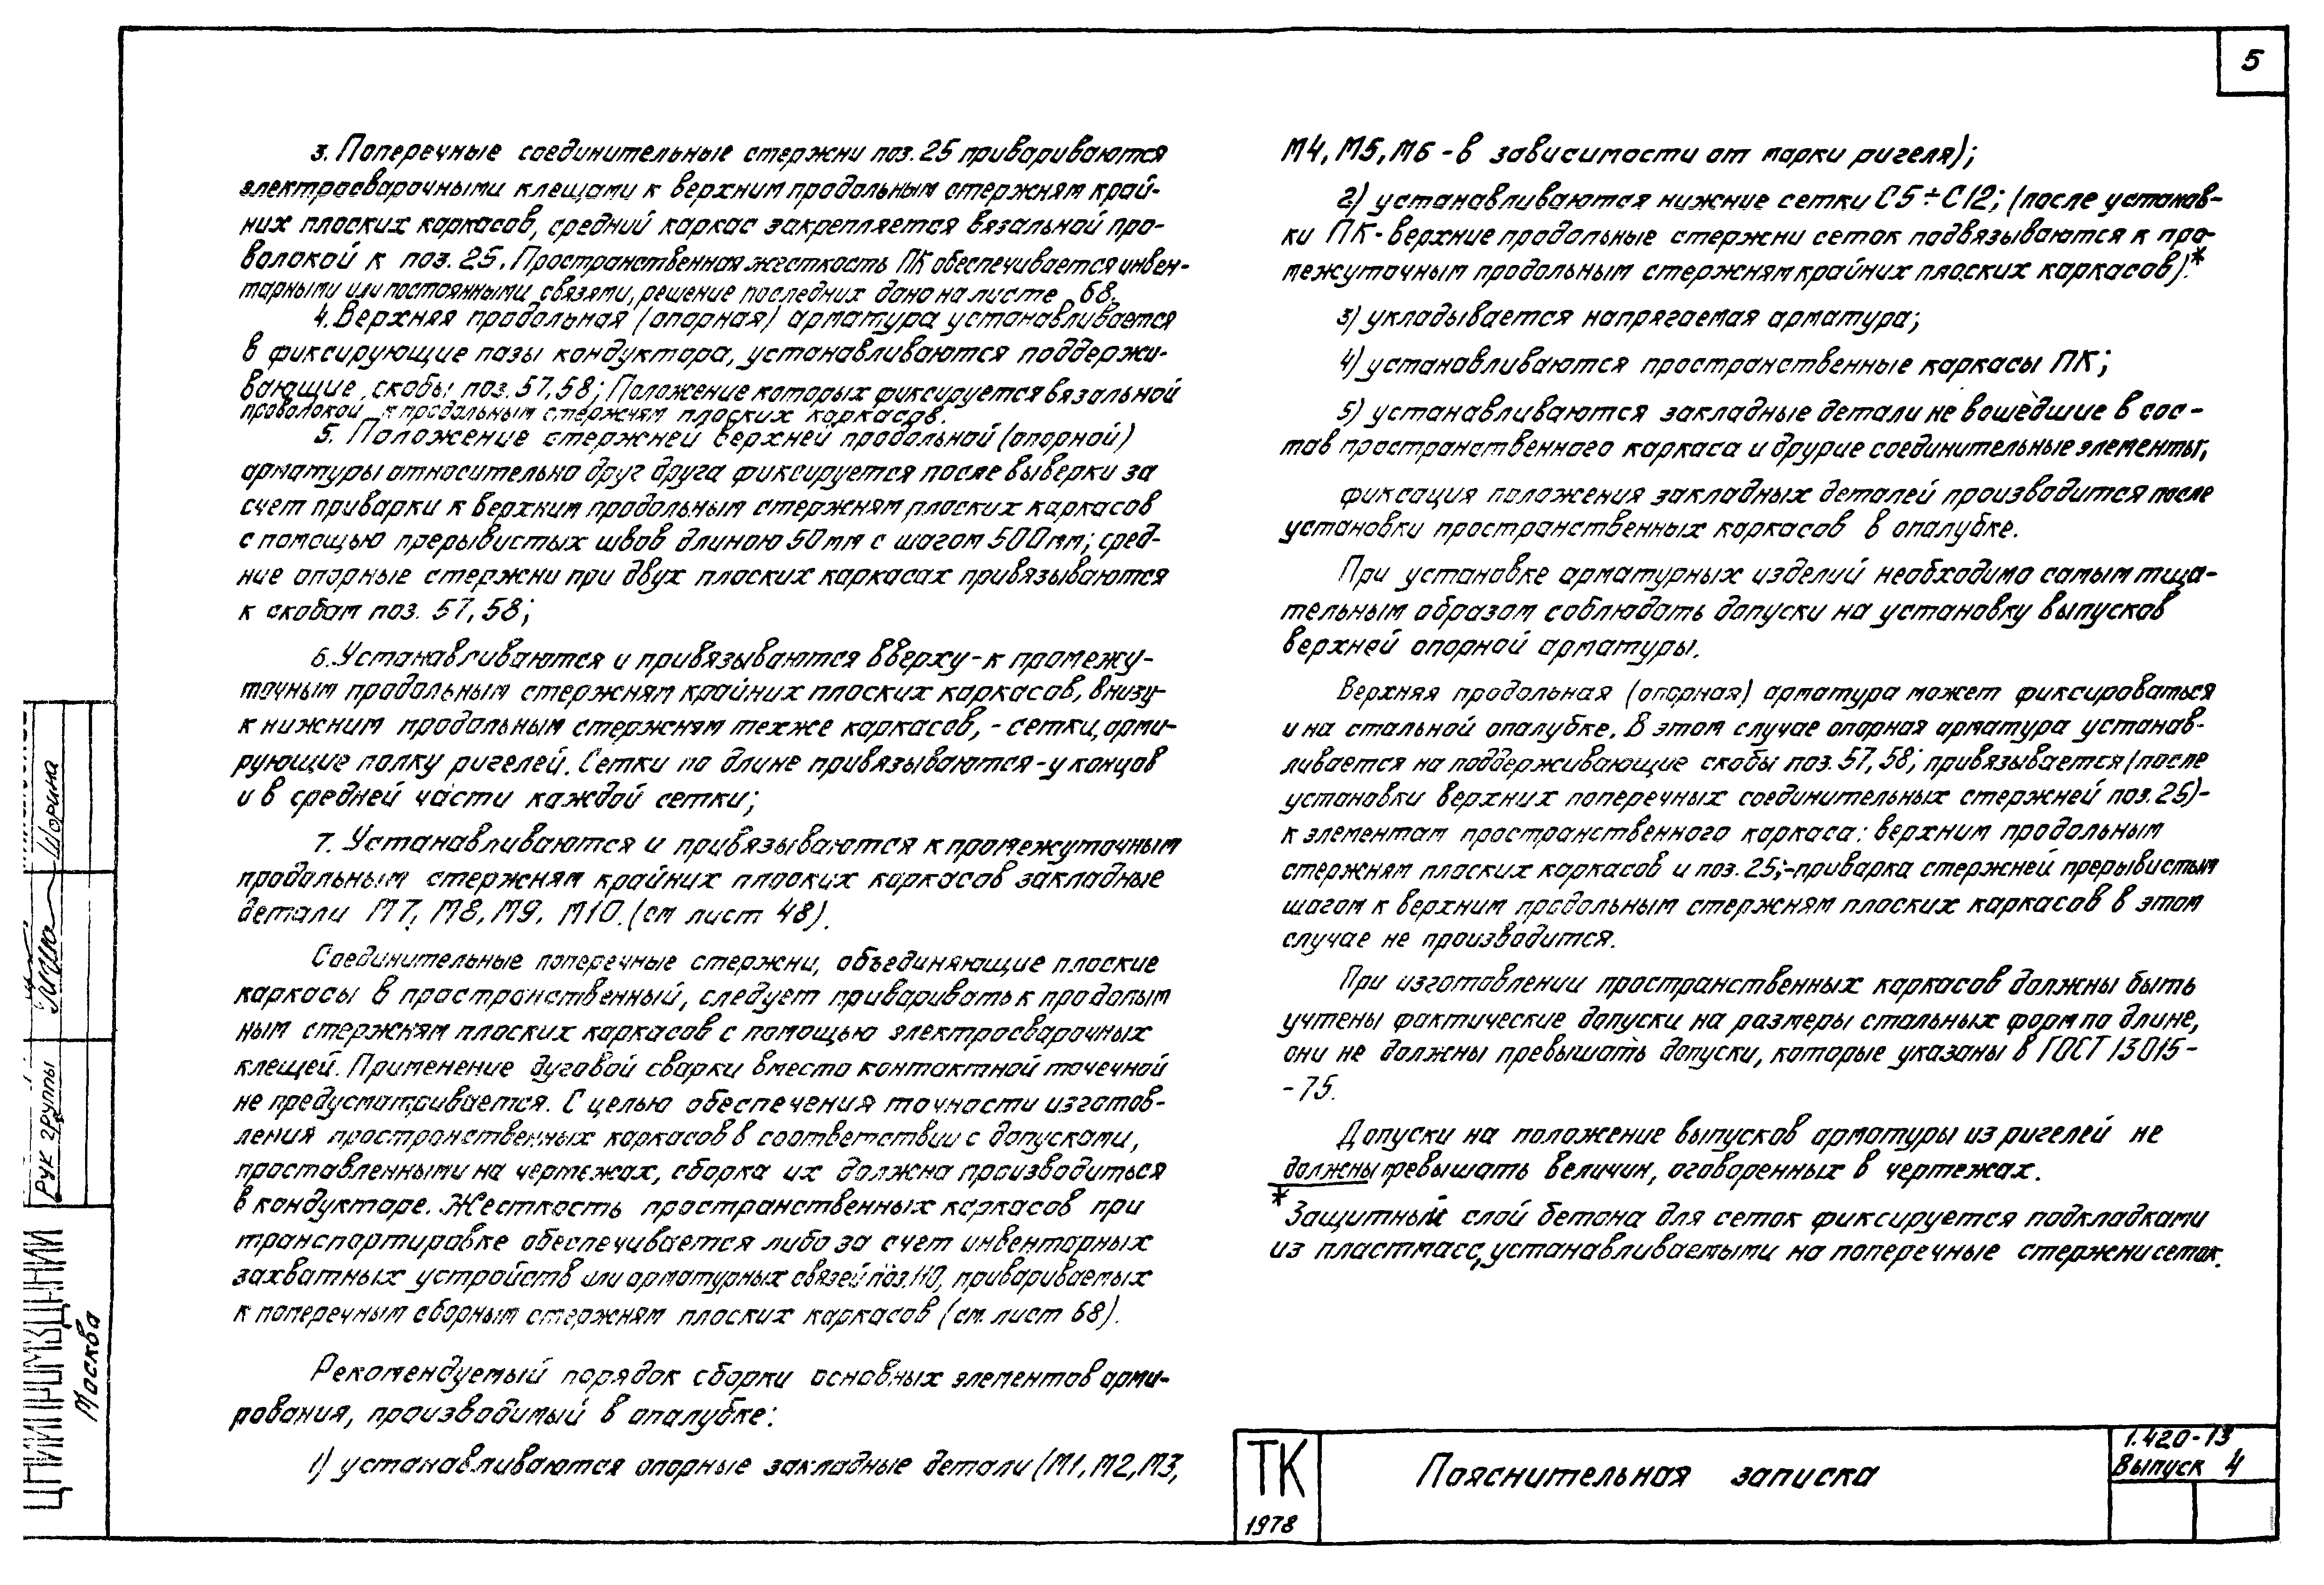 5
3. Поперечные соединительные стержни поз. 25 привариваются
электросварочными клещами к верхним продольным стержням край-
них плоских каркасов, средний каркас закрепляется вязальной про-
волокой к поз. 25. Пространственная жесткость ПК обеспечивается инвен-
тарными или постоянными связями, решение последних дано на листе 68.
4. Верхняя продольная (опорная) арматура устанавливается
в фиксирующие пазы кондуктора, устанавливаются поддержи-
вающие скобы поз. 57, 58; Положение которых фиксируется вязальной
проволокой к продольным стержням плоских каркасов.
5. Положение стержней верхней продольной (опорной)
арматуры относительно друг друга фиксируется после выверки за
счет приварки к верхним продольным стержням плоских каркасов
с помощью прерывистых швов длиною 50 мм с шагом 500 мм; сред-
ние опорные стержни при двух плоских каркасах привязываются
к скобам поз. 57, 58;
6. Устанавливаются и привязываются вверху - к промежу-
точным продольным стержням крайних плоских каркасов, внизу-
к нижним продольным стержням тех же каркасов, - сетки, арми-
рующие полку ригелей. Сетки по длине привязываются - у концов
и в средней части каждой сетки;
7. Устанавливаются и привязываются к промежуточным
продольным стержням крайних плоских каркасов закладные
детали М7, М8, М9, М10. (см лист 48).
Соединительные поперечные стержни, объединяющие плоские
каркасы в пространственный, следует приваривать к продольм
ным стержням плоских каркасов с помощью электросварочных
клещей. Применение дуговой сварки вместо контактной точечной
не предусматривается. С целью обеспечения точности изготов-
ления пространственных каркасов в соответствии с допусками,
проставленными на чертежах, сборка их должна производиться
в кондукторе. Жесткость пространственных каркасов при
транспортировке обеспечивается либо за счет инвентарных
захватных устройств или арматурных связей поз. 110, привариваемых
к поперечным сборным стержням плоских каркасов (см. лист 68).
Рекомендуемый порядок сборки основных элементов арми-
рования, производимый в опалубке:
1) устанавливаются опорные закладные детали (М1, М2, М3,
М4, М5, М6 - в зависимости от марки ригеля);
2) устанавливаются нижние сетки С5÷С12; (после установ-
ки ПК - верхние продольные стержни сеток подвязываются к про-
межуточным продольным стержням крайних плоских каркасов).*
3) укладывается напрягаемая арматура;
4) устанавливаются пространственные каркасы ПК;
5) устанавливаются закладные детали не вошедшие в сос-
тав пространственного каркаса и другие соединительные элементы.
фиксация положения закладных деталей производится после
установки пространственных каркасов в опалубке.
При установке арматурных изделий необходимо самым тща-
тельным образом соблюдать допуски на установку выпусков
верхней опорной арматуры.
Верхняя продольная (опорная) арматура может фиксироваться
и на стальной опалубке. В этом случае опорная арматура устанав-
ливается на поддерживающие скобы поз. 57, 58; привязывается (после
установки верхних поперечных соединительных стержней поз. 25)-
к элементам пространственного каркаса: верхним продольным
стержням плоских каркасов и поз. 25;- приварка стержней прерывистым
шагом к верхним продольным стержням плоских каркасов в этом
случае не производится.
При изготовлении пространственных каркасов должны быть
учтены фактические допуски на размеры стальных форм по длине,
они не должны превышать допуски, которые указаны в ГОСТ 13015-
-75.
Допуски на положение выпусков арматуры из ригелей не
должны превышать величин, оговоренных в чертежах.
* Защитный слой бетона для сеток фиксируется подкладками
из пластмасс, устанавливаемыми на поперечные стержни сеток.
ТК
1978
Пояснительная записка
1.420-13
Выпуск 4
Рук группы
Шорина
ЦНИИПРОМЗДАНИЙ
Москва